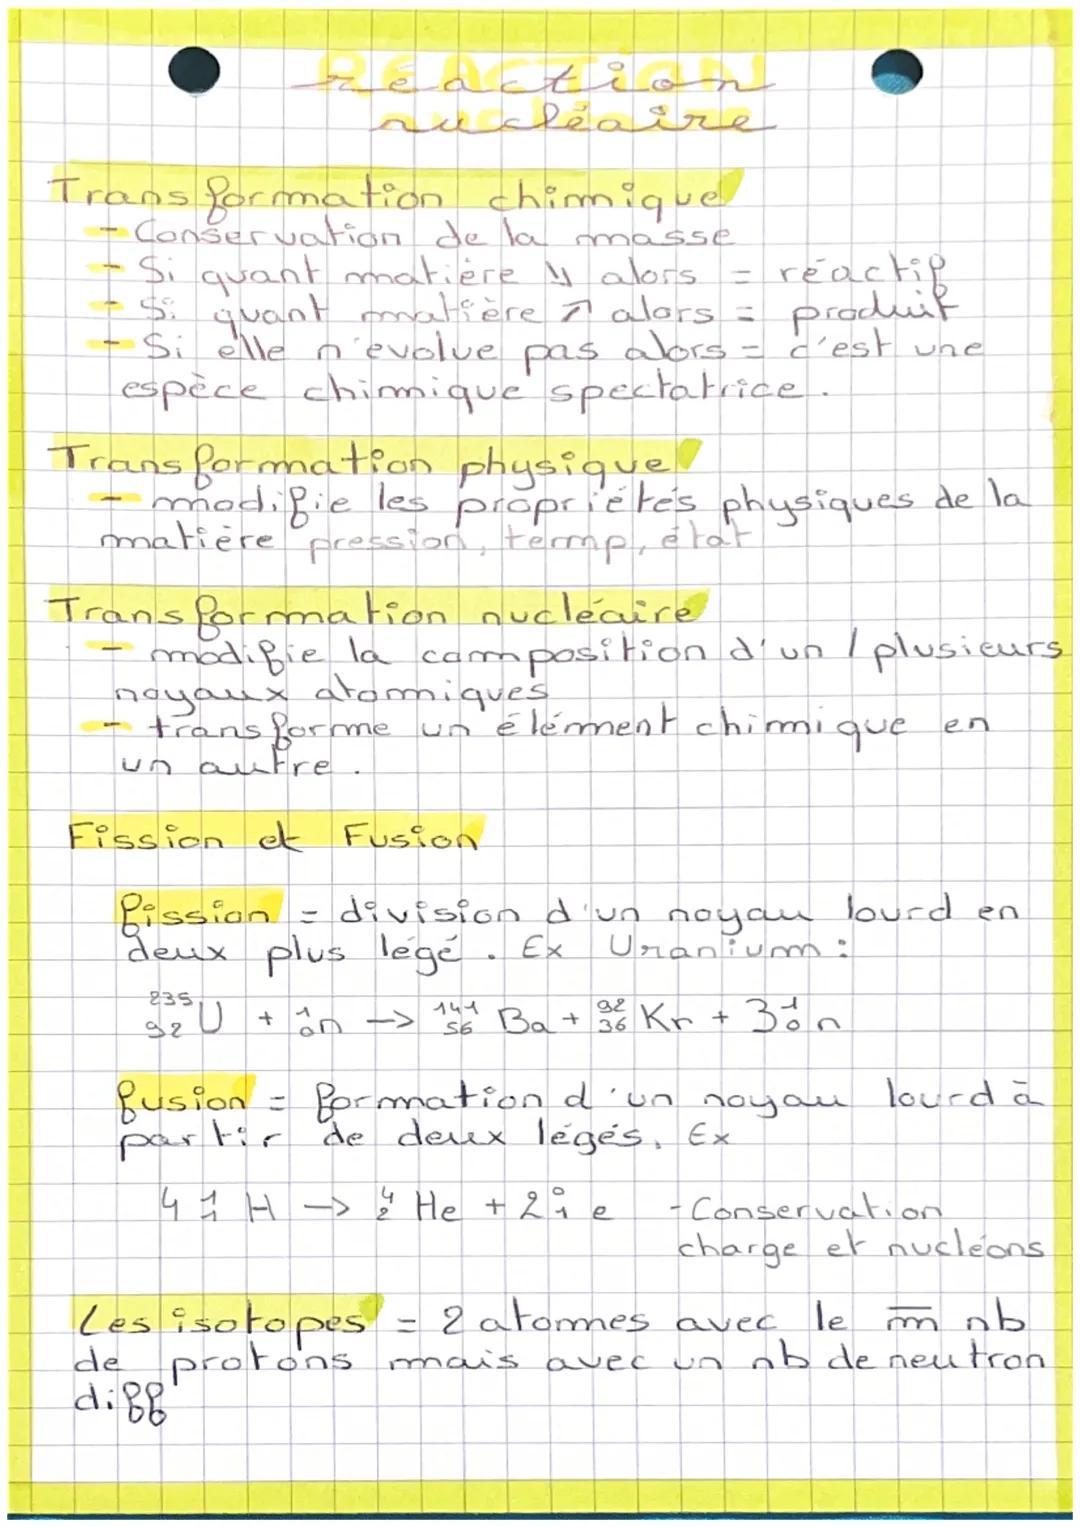 REACTION
réaction
nucléaire
Transformation chimique
- Conservation de la masse
- Si quant matière ↘ alors = réactif
- Si quant matière ↗ alors = produit
- Si elle n'evolue pas alors = c'est une
espèce chimique spectatrice.
Transformation physique
- modifie les propriétés physiques de la
matière pression, temp, état
Transformation nucléaire
- modifie la composition d'un / plusieurs
noyaux atomiques
- transforme un élément chimique en
un autre.
Fission et Fusion
fission = division d'un noyau lourd en
deux plus légé. Ex Uranium :
²³⁵₉₂U + ¹₀n -> ¹⁴¹₅₆Ba + ⁹²₃₆Kr + 3¹₀n
fusion = formation d'un noyau lourd à
partir de deux légés. Ex
4 ¹₁H -> ⁴₂He + 2⁰₁e - Conservation
charge et nucléons
Les isotopes = 2 atomes avec le m̄ nb
de protons mais avec un nb de neutron
diff